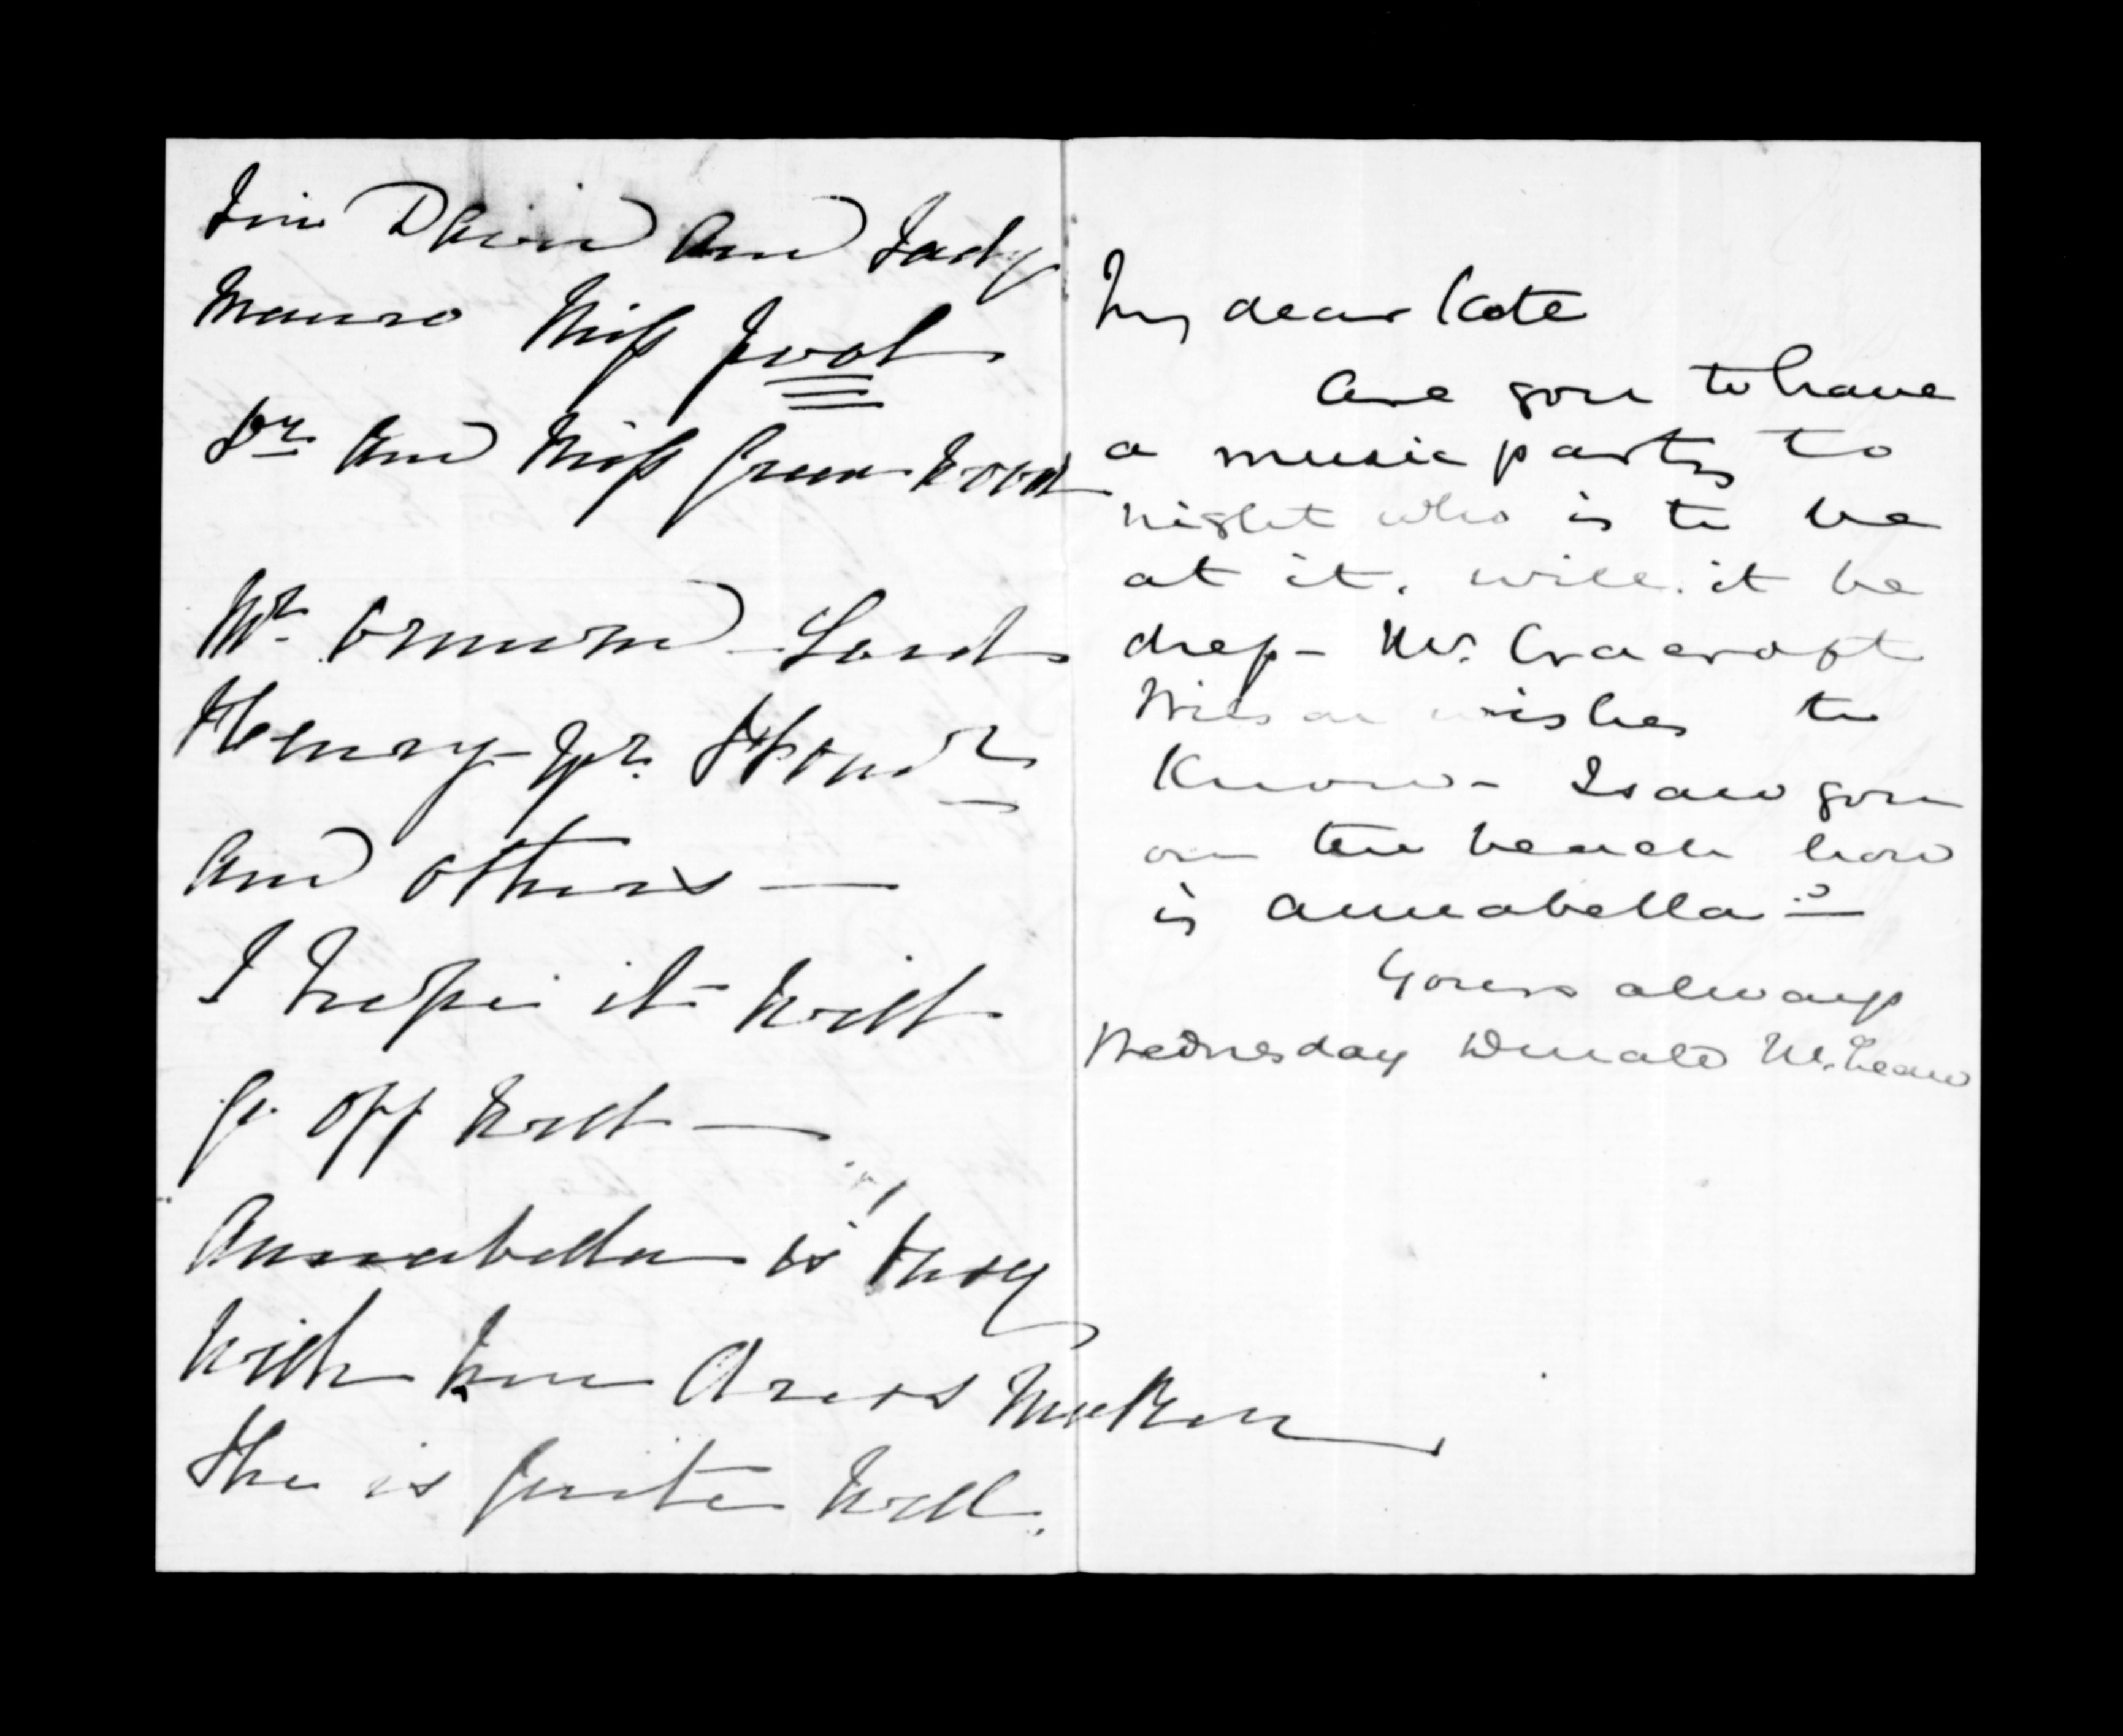 Sir David and Lady
Monro Miss
Dr and Miss Greenwood
Mr Ormond - Lord
Henry -
and others —
I hope it will
go off well —
Annabella is busy
with her
She is quite well.
My dear Kate
Are you to have
a music party to
night who is to be
at it. will it be
dress - Mr. Cracroft
Wilson wishes to
Know - I saw you
on the beach how
is Annabella? —
Yours always
Wednesday Donald McLean